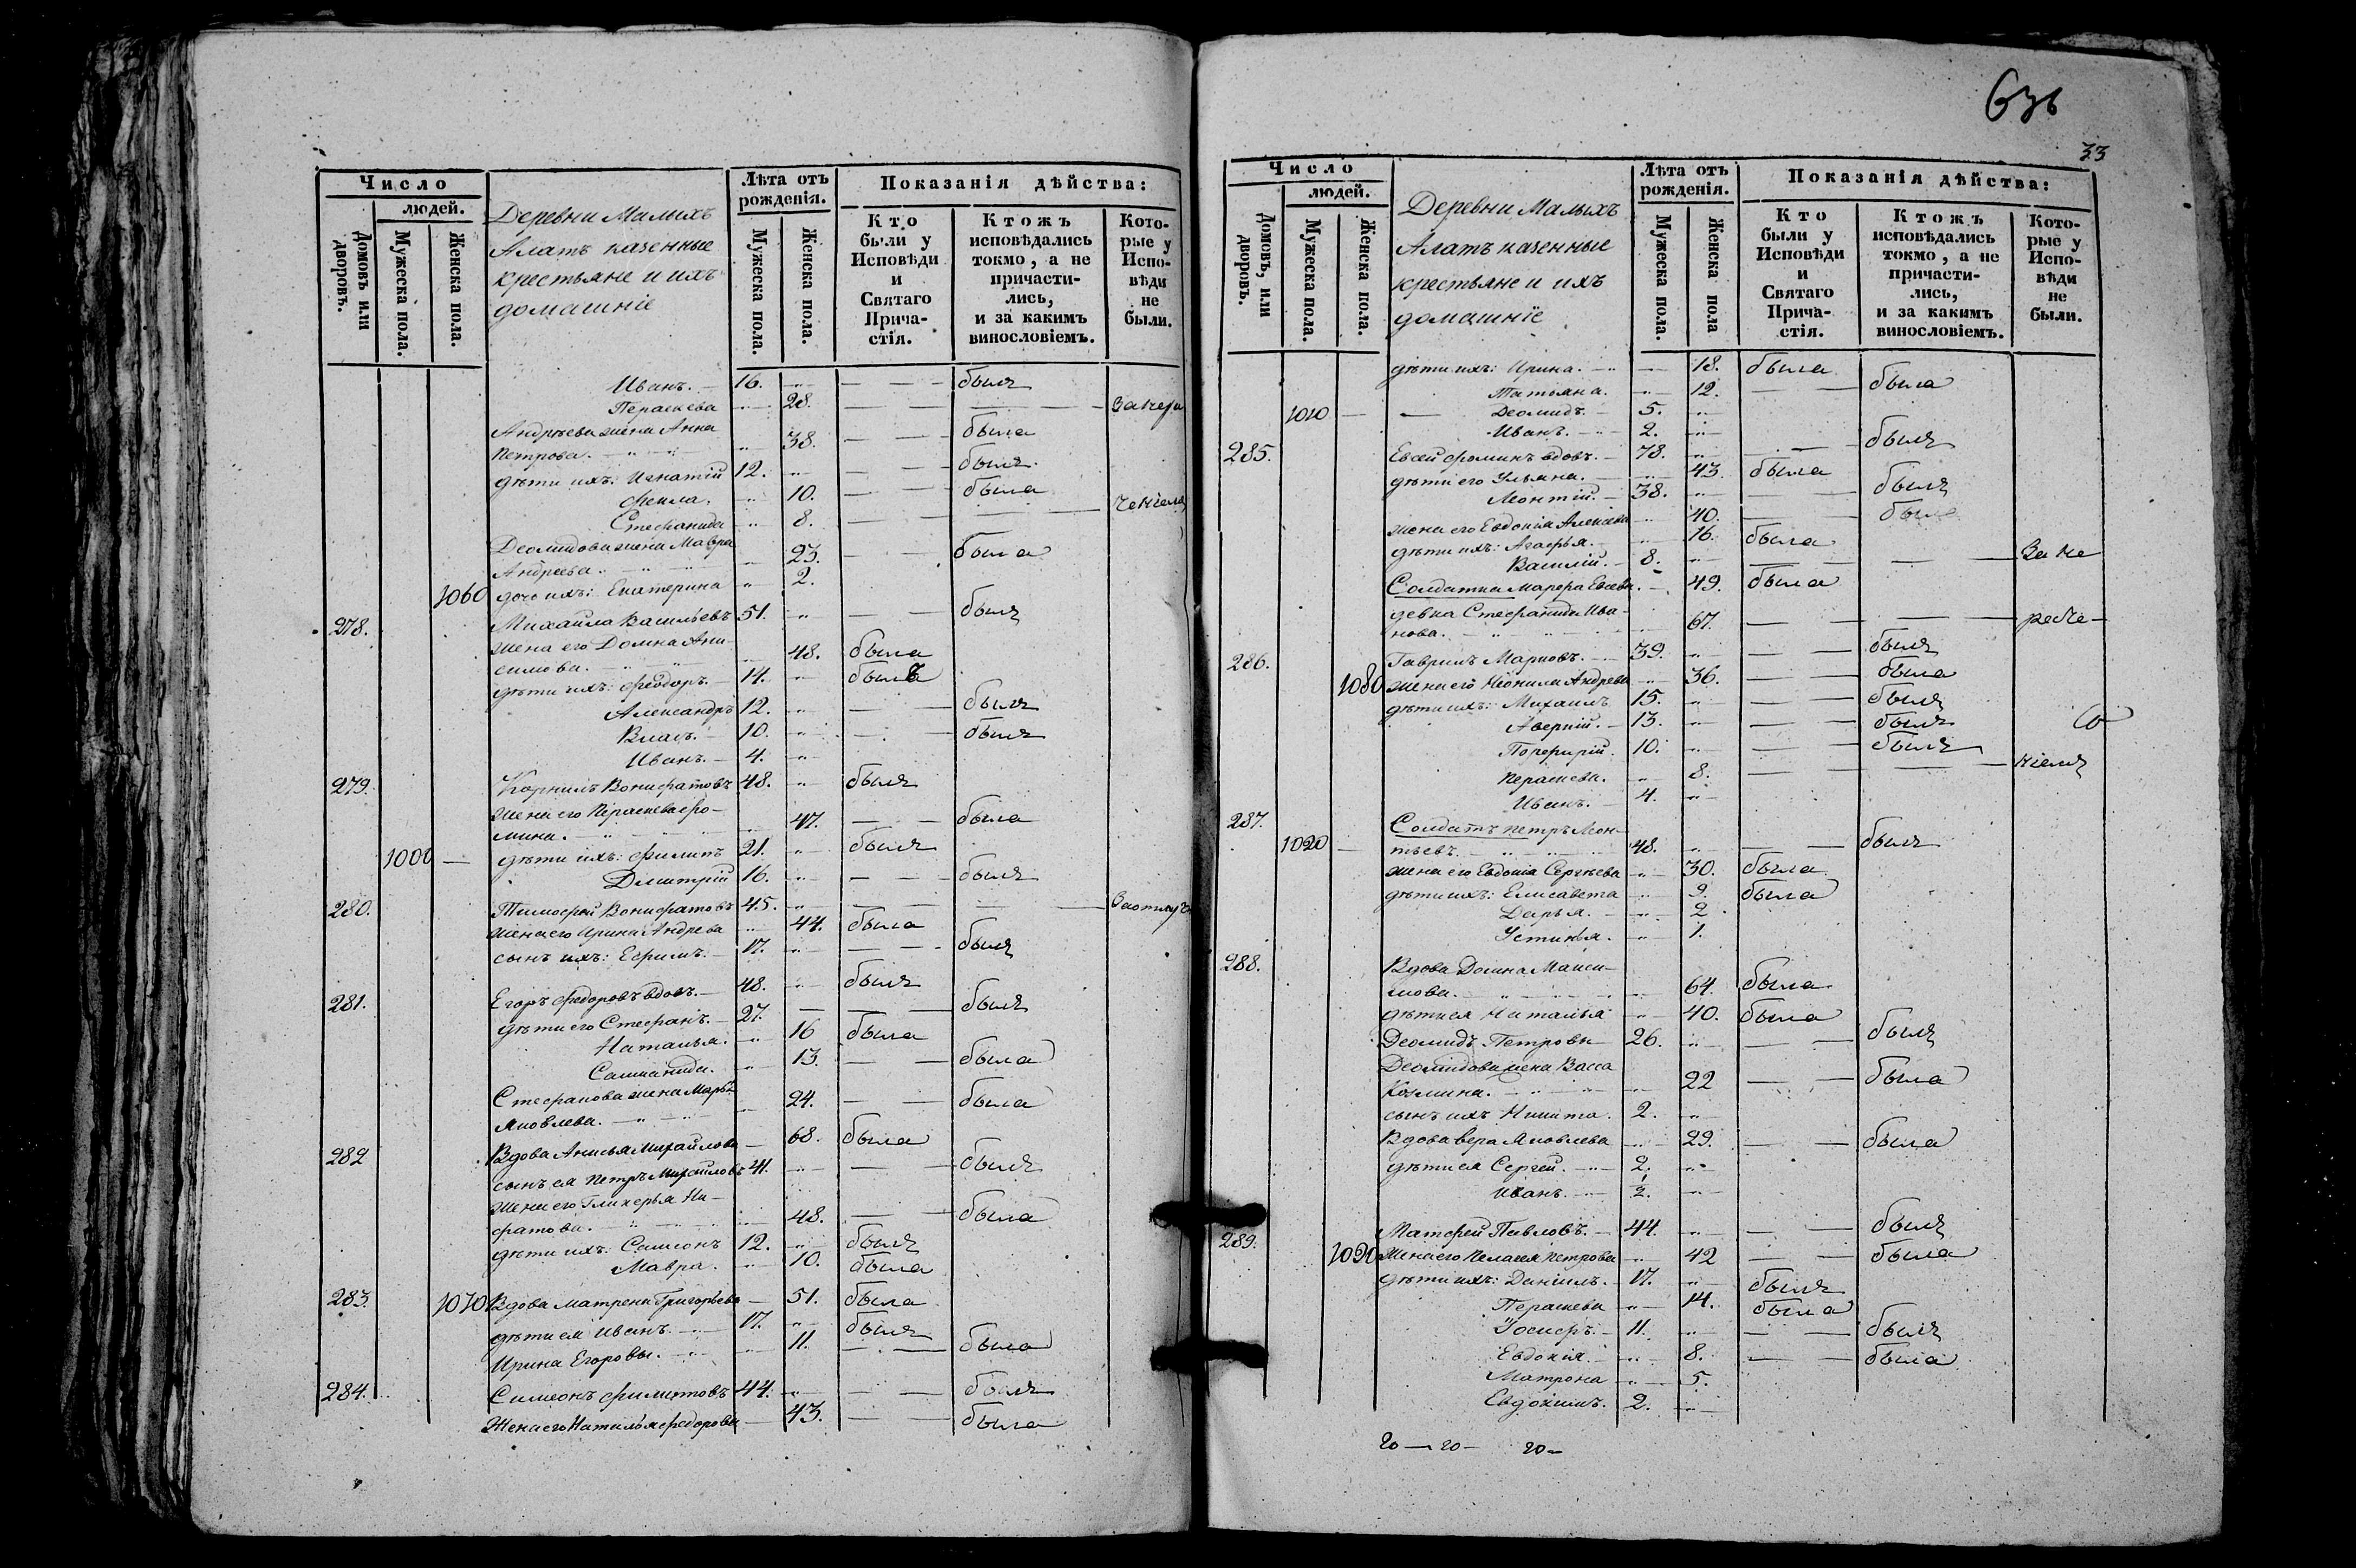 636
33
Число
людей.
Домовъ или дворовъ.
Мужеска пола.
Женска пола.
Деревни Малыхъ
Алатъ казенные
крестьяне и ихъ
домашніе
Лѣта отъ рожденія.
Мужеска пола.
Женска пола.
Показанія дѣйства:
Кто были у Исповѣди и Святаго Прича-стія.
Ктожъ исповѣдались токмо, а не причасти-лись, и за какимъ винословіемъ.
Кото-рые у Испо-вѣди не были.
Иванъ. 16. былъ
Параскева 28.
Андреева жена Анна
Петрова. 38. была
дѣти ихъ: Игнатій 12. былъ
Фекла. 10. была
Стефанида 8.
Деомидова жена Мавра
Андреева. 23. была
1060 дочь ихъ: Екатерина 2.
278. Михайла Васильевъ 51. былъ
жена его Домна Ани-
симова. 48. была
дѣти ихъ: Феодоръ. 14. былъ
Александръ 12. былъ
Власъ. 10. былъ
Иванъ. 4.
279. Корнилъ Вонифатовъ 48. былъ
жена его Параскева Фо-
мина. 47. была
1000 дѣти ихъ: Филипъ 21. былъ
Димитрій 16. былъ
280. Тимофей Вонифатовъ 45.
жена его Ирина Андреева 44. была
сынъ ихъ: Ефимъ. 17. былъ
281. Егоръ Федоровъ вдовъ. 48. былъ
дѣти его Стефанъ. 27. былъ
Наталья. 16 была
13. была
Стефанова жена Марья
Яковлева. 24. была
282 Вдова Анисья Михайлова 68. была
сынъ ея Петръ Михайловъ 41. былъ
жена его Гликерья Ни-
фатова. 48. была
дѣти ихъ: Самсонъ 12. былъ
Мавра. 10. была
283. 1070 Вдова Матрена Григорьева 51. была
дѣти ея Иванъ. 17. былъ
Ирина Егоровы. 11. была
284. Симеонъ Филиповъ 44. былъ
Жена его Наталья Федорова 43. была
Число
людей.
Домовъ, или дворовъ.
Мужеска пола.
Женска пола.
Деревни Малыхъ
Алатъ казенные
крестьяне и ихъ
домашніе
Лѣта отъ рожденія.
Мужеска пола.
Женска пола
Показанія дѣйства:
Кто были у Исповѣди и Святаго Прича-стія.
Ктожъ исповѣдались токмо, а не причасти-лись, и за какимъ винословіемъ.
Кото-рые у Испо-вѣди не были.
дѣти ихъ: Ирина. 18. была
Татьяна. 12. была
1010 Деомидъ. 5.
Иванъ. 2.
285. Евсей Фоминъ вдовъ. 78. былъ
дѣти его Ульяна. 43. была
Леонтій. 38. былъ
жена его Евдокія Алексѣева 40. была
дѣти ихъ: Агафья. 16. была
Василій. 8.
Солдатка Марфа Евсева. 49. была
девка Стефанида Ива-
нова. 67.
286. Гаврилъ Марковъ. 39. былъ
1080 жена его Неонила Андреева 36. была
дѣти ихъ: Михаилъ 15. былъ
Аверкій. 13. былъ
Порфирій. 10. былъ
Параскева. 8.
Иванъ. 4.
287. Солдатъ Петръ Леон-
1020 тьевъ. 48. былъ
жена его Евдокія Сергѣева 30. была
дѣти ихъ: Елисавета 9. была
Дарья. 2
Устинья. 1.
288. Вдова Домна Макси-
мова. 64. была
дѣти ея Наталья 40. была
Деомидъ Петровы 26. былъ
Деомидова жена Васса
Козмина. 22 была
сынъ ихъ Никита. 2.
Вдова Вера Яковлева 29. была
дѣти ея Сергей. 2.
Иванъ. ½.
289. Матфей Павловъ. 44. былъ
1090 Жена его Пелагея Петрова 42 была
дѣти ихъ: Даніилъ. 17. былъ
Параскева 14. была
Іосифъ. 11. былъ
Евдокія. 8. была
Матрона 5.
Евдокимъ. 2.
20 — 20 — 20 —